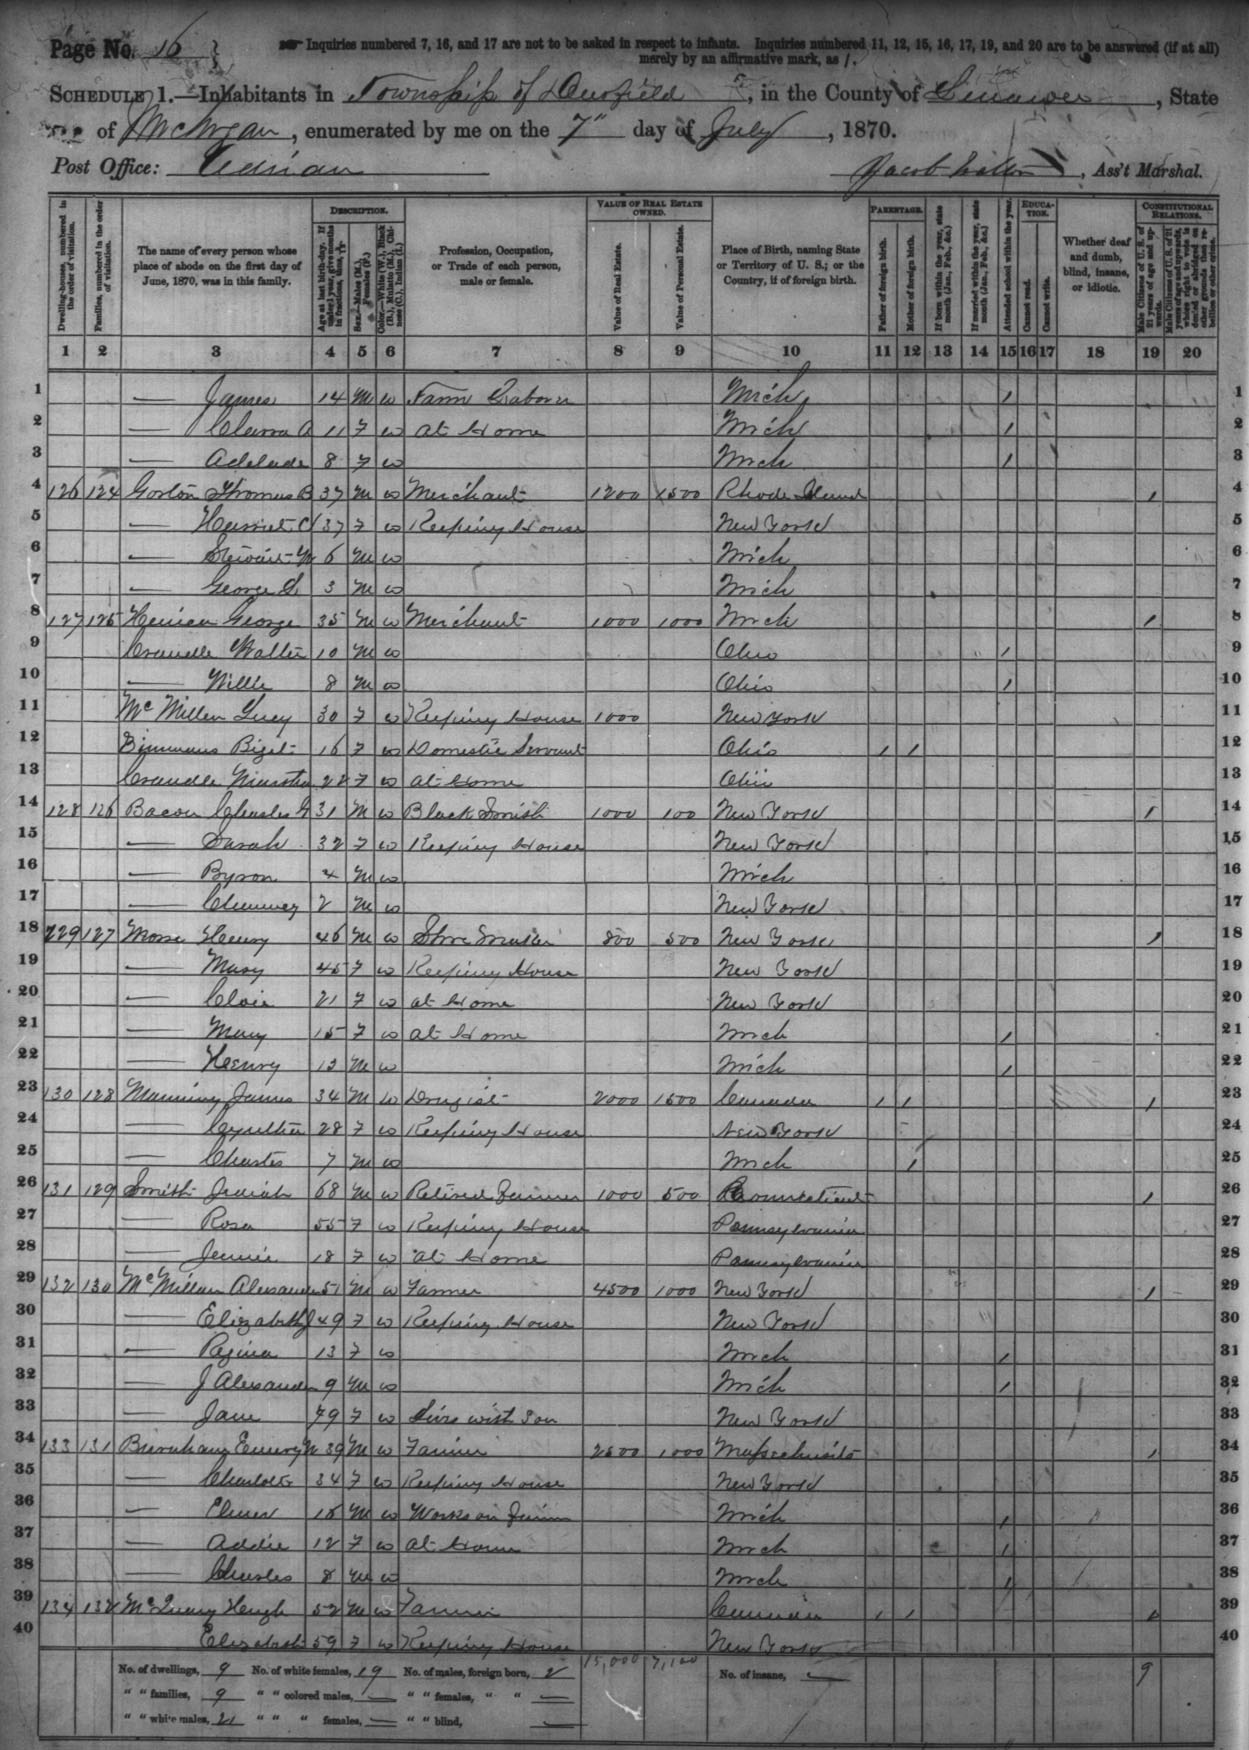 Page No. 16
Inquiries numbered 7, 16, and 17 are not to be asked in respect to infants. Inquiries numbered 11, 12, 15, 16, 17, 19, and 20 are to be answered (if at all)
merely by an affirmative mark, as /.
SCHEDULE 1.—Inhabitants in Township of Deerfield, in the County of Lenawee, State
of Michigan, enumerated by me on the 7" day of July, 1870.
Post Office: Adrian
Jacob, Ass't Marshal.
Dwelling-houses, numbered in the order of visitation.
Families, numbered in the order of visitation.
The name of every person whose place of abode on the first day of June, 1870, was in this family.
DESCRIPTION.
Age at last birth-day. If under 1 year, give months in fractions, thus,
Sex.—Males (M.), Females (F.)
Color.—White (W.), Black (B.), Mulatto (M.), Chinese (C.), Indian (I.)
Profession, Occupation, or Trade of each person, male or female.
VALUE OF REAL ESTATE OWNED.
Value of Real Estate.
Value of Personal Estate.
Place of Birth, naming State or Territory of U. S.; or the Country, if of foreign birth.
PARENTAGE.
Father of foreign birth.
Mother of foreign birth.
If born within the year, state month (Jan., Feb., &c.)
If married within the year, state month (Jan., Feb., &c.)
Attended school within the year.
EDUCATION.
Cannot read.
Cannot write.
Whether deaf and dumb, blind, insane, or idiotic.
CONSTITUTIONAL RELATIONS.
Male Citizens of U. S. of 21 years of age and upwards.
Male Citizens of U. S. of 21 years of age and upwards, whose right to vote is denied or abridged on other grounds than rebellion or other crime.
1 2 3 4 5 6 7 8 9 10 11 12 13 14 15 16 17 18 19 20
1 — James 14 M W Farm Laborer Mich / 1
2 — Clarra A 11 F W at Home Mich / 2
3 — Adelade 8 F W Mich / 3
4 126 124 Gorton Thomas B 37 M W Merchant 1200 1500 Rhode Island / 4
5 — Harriet 37 F W Keeping House New York 5
6 — Stewart 6 M W Mich 6
7 — George S. 3 M W Mich 7
8 127 125 George 35 M W Merchant 1000 1000 Mich / 8
9 Crandle Walter 10 M W Ohio / 9
10 — Willie 8 M W Ohio / 10
11 McMillen Lucy 30 F W Keeping House 1000 New York 11
12 16 F W Domestic Servant Ohio / / 12
13 Crandle 22 F W at Home Ohio 13
14 128 126 Bacon Charles G 31 M W Black Smith 1000 100 New York / 14
15 — Sarah 32 F W Keeping House New York 15
16 — Byron 4 M W Mich 16
17 — Chauncey 2 M W New York 17
18 129 127 Morse Henry 46 M W Shoe Maker 800 500 New York / 18
19 — Mary 45 F W Keeping House New York 19
20 — 21 F W at Home New York 20
21 — Mary 15 F W at Home Mich / 21
22 — Henry 12 M W Mich / 22
23 130 128 Manning James 34 M W Drugist 2000 1500 Canada / / / 23
24 — Cynthia 28 F W Keeping House New York 24
25 — Charles 7 M W Mich / 25
26 131 129 Smith 68 M W Retired Farmer 1000 500 Connecticut / 26
27 — Rosa 55 F W Keeping House Pennsylvania 27
28 — Jennie 18 F W at Home Pennsylvania 28
29 132 130 McMillan Alexander 51 M W Farmer 4500 1000 New York / 29
30 — Elizabeth J 49 F W Keeping House New York 30
31 — Regina 13 F W Mich / 31
32 — J Alexander 9 M W Mich / 32
33 — Jane 79 F W Lives with Son New York 33
34 133 131 Burnham Emery W 39 M W Farmer 2500 1000 Massachusetts / 34
35 — Charlotte 34 F W Keeping House New York 35
36 — Elmer 16 M W Works on Farm Mich / 36
37 — Addie 12 F W at Home Mich / 37
38 — Charles 8 M W Mich / 38
39 134 132 Hugh 52 M W Farmer Canada / / / 39
40 Elizabeth 59 F W Keeping House New York 40
No. of dwellings, 9 No. of white females, 19 No. of males, foreign born, 2 15,000 7,100 No. of insane, — 9
" " families, 9 " " colored males, — " " females, " " —
" " white males, 21 " " " females, — " " blind, —